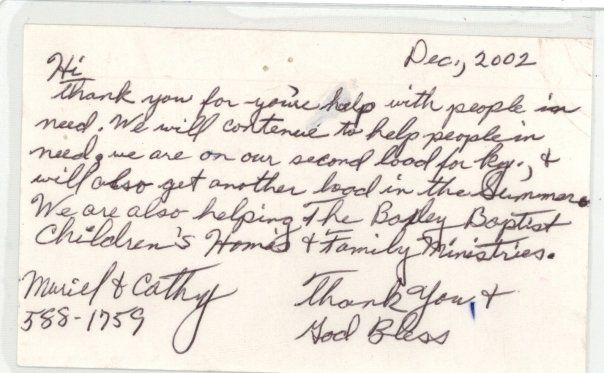 Dec., 2002
Hi
Thank you for you're help with people in
need. We will contenue to help people in
need, we are on our second load for Ky., &
will also get another load in the Summer.
We are also helping The Bapley Baptist
Children's Homes & Family Ministries.
Muriel & Cathy
588-1759
Thank You, &
God Bless